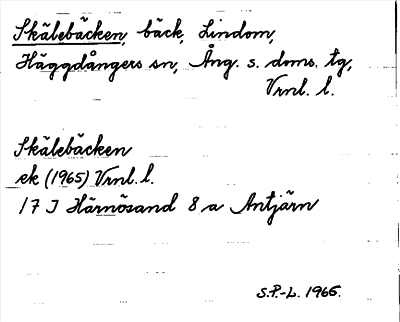 Skälebäcken, bäck, Lindom,
Häggdångers sn, Ång. s. doms. tg,
Vrnl. l.
Skälebäcken
ek (1965) Vrnl. l.
17 J Härnösand 8 a Antjärn
S.P.-L. 1965.